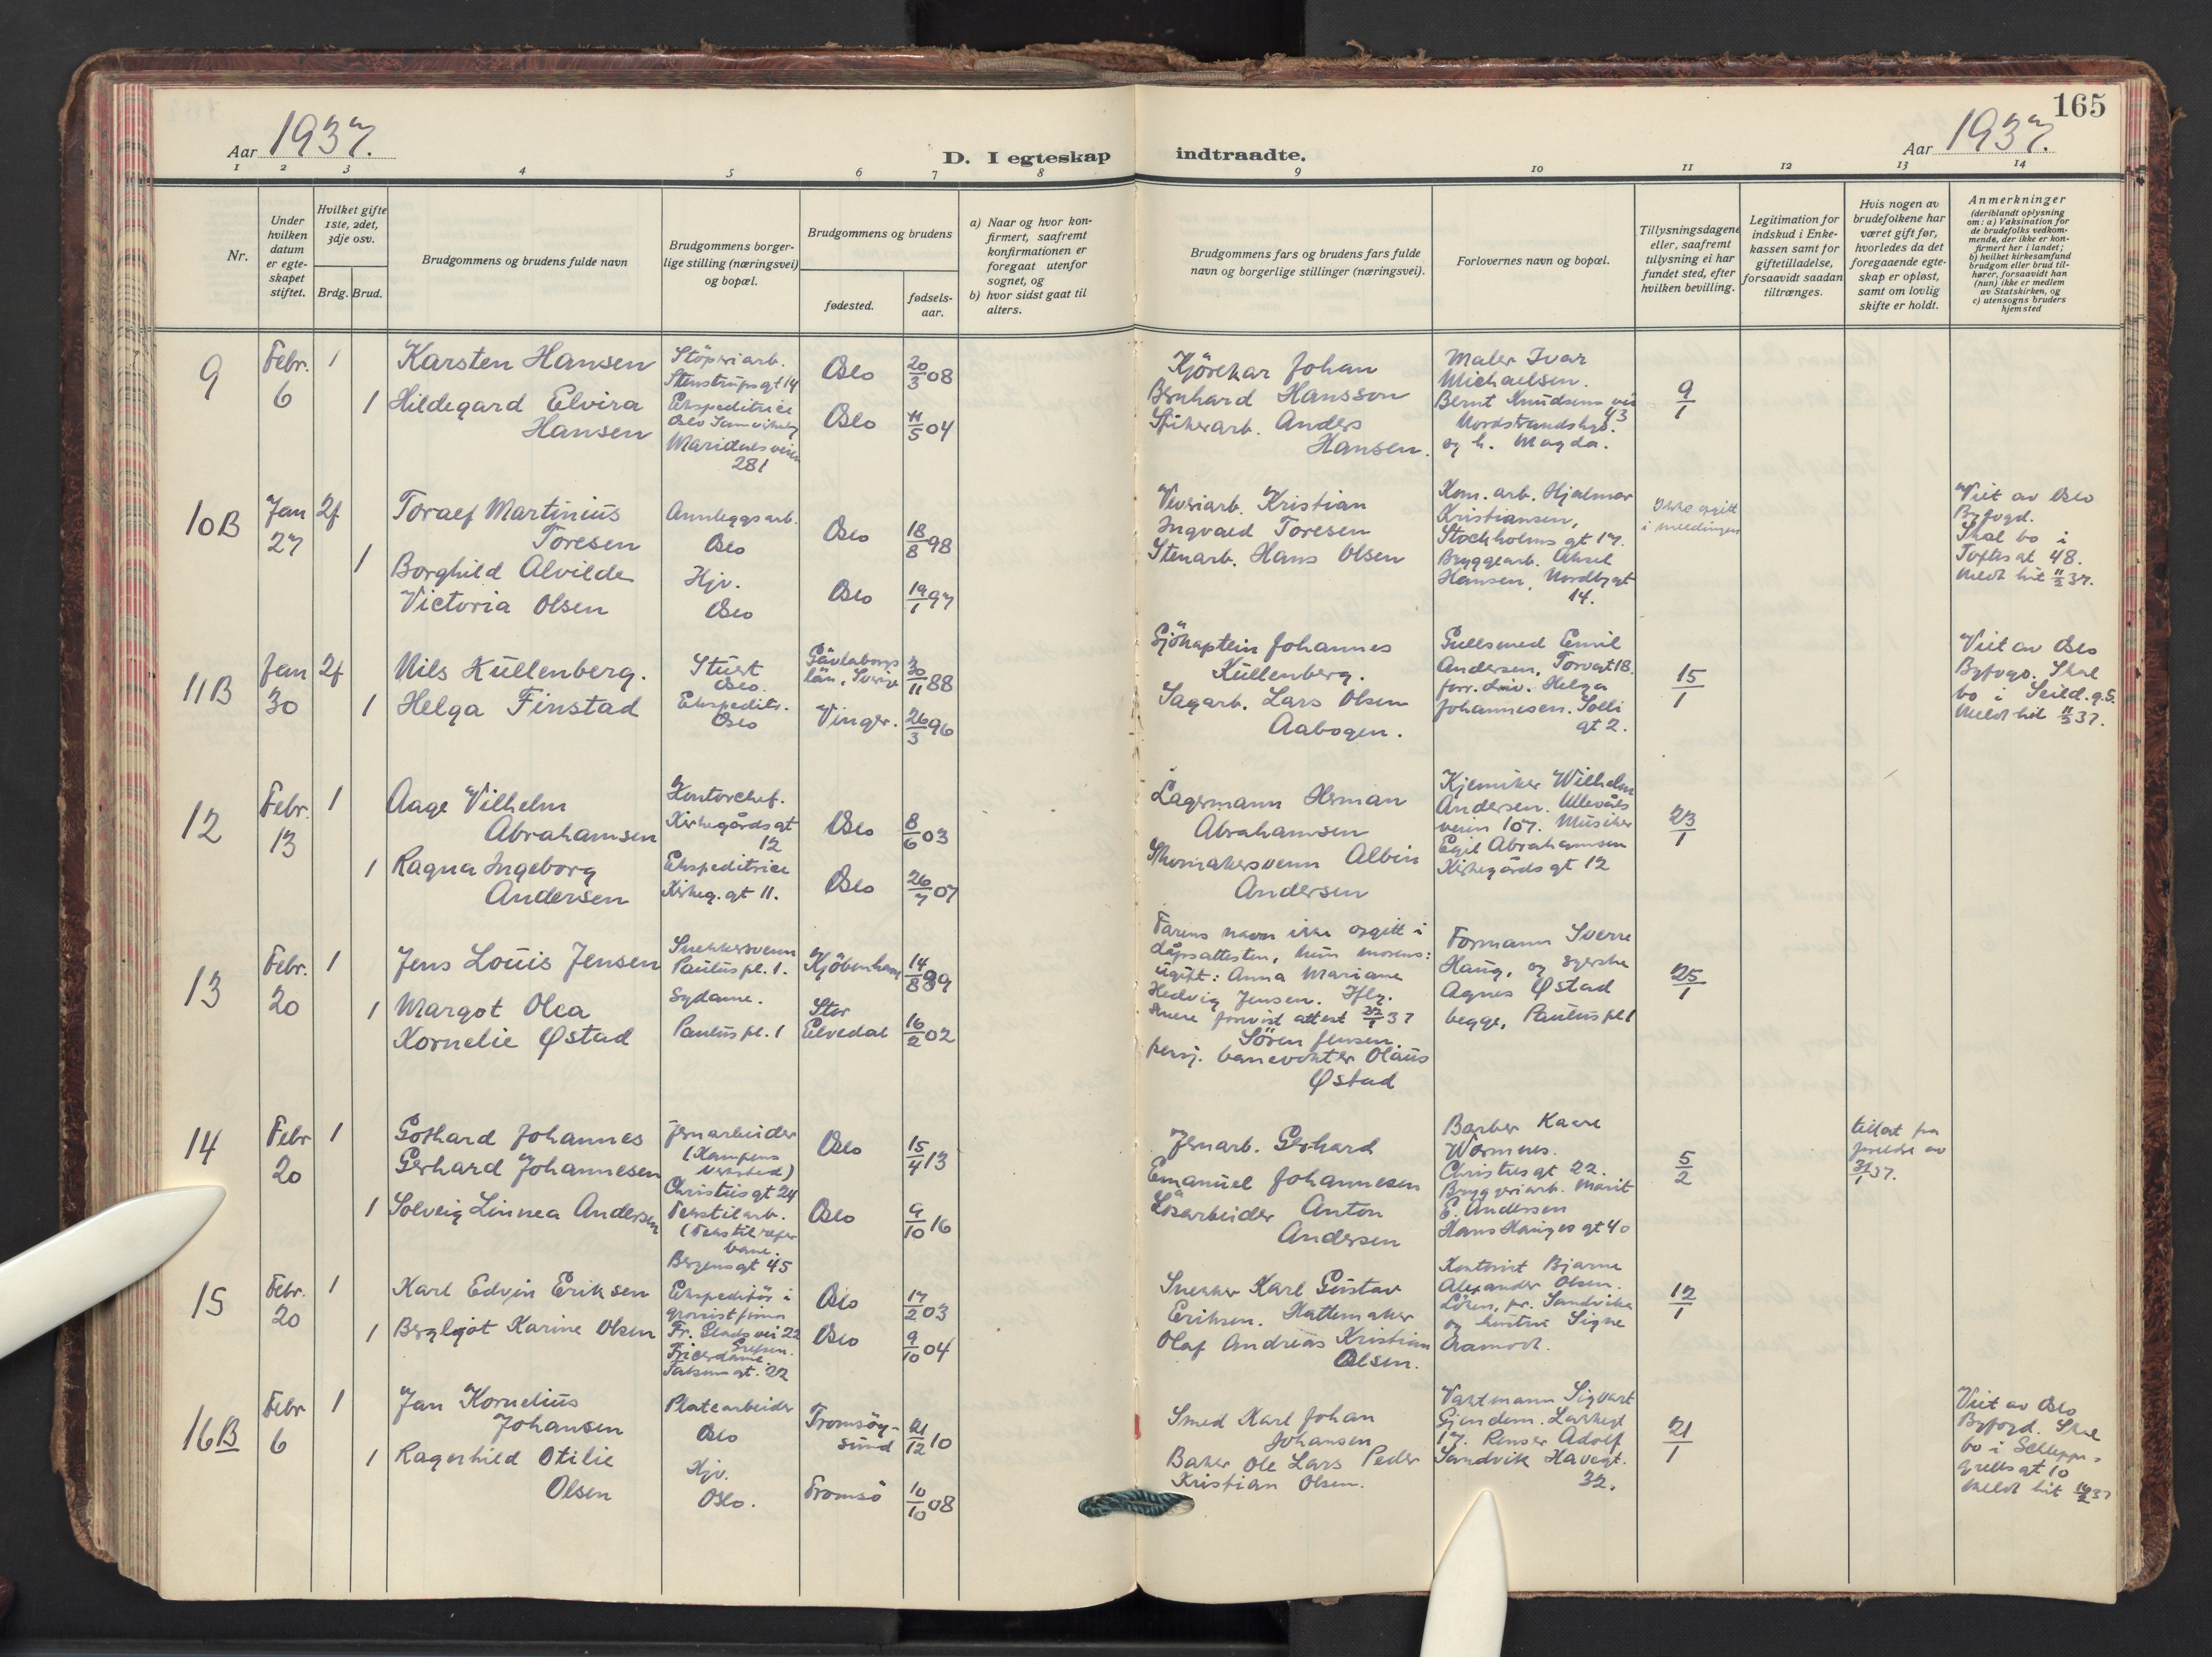 165
Aar 1937.
D. I egteskap indtraadte.
Aar 1937.
1 2 3 4 5 6 7 8 9 10 11 12 13 14
Nr.
Under
hvilken
datum
er egte-
skapet
stiftet.
Hvilket gifte
1ste, 2det,
3dje osv.
Brdg. Brud.
Brudgommens og brudens fulde navn
Brudgommens borger-
lige stilling (næringsvei)
og bopæl.
Brudgommens og brudens
fødested.
fødsels-
aar.
a) Naar og hvor kon-
firmert, saafremt
konfirmationen er
foregaat utenfor
sognet, og
b) hvor sidst gaat til
alters.
Brudgommens fars og brudens fars fulde
navn og borgerlige stillinger (næringsvei).
Forlovernes navn og bopæl.
Tillysningsdagene
eller, saafremt
tillysning ei har
fundet sted, efter
hvilken bevilling.
Legitimation for
indskud i Enke-
kassen samt for
giftetilladelse,
forsaavidt saadan
tiltrænges.
Hvis nogen av
brudefolkene har
været gift før,
hvorledes da det
foregaaende egte-
skap er opløst,
samt om lovlig
skifte er holdt.
Anmerkninger
(deriblandt oplysning
om: a) Vaksination for
de brudefolks vedkom-
mende, der ikke er kon-
firmert her i landet;
b) hvilket kirkesamfund
brudgom eller brud til-
hører, forsaavidt han
(hun) ikke er medlem
av Statskirken, og
c) utensogns bruders
hjemsted
9
Febr.
6
1
1
Karsten Hansen
Hildegard Elvira
Hansen
Støperiarb.
Stenstrupsgt 14
Ekspeditrice
Maridalsveien
281
Oslo
Oslo
20/3 08
11/5 04
Kjörekar Johan
Bernhard Hansson
Spikerarb. Anders
Hansen.
Maler Ivar
Michaelsen.
Bernt Knudsens vei
43
Nordstrandshød.
og h. Magda.
9/1
10B
Jan
27
2f
1
Toralf Martinius
Toresen
Borghild Alvilde
Victoria Olsen
Annleggsarb.
Oslo
Hjv.
Oslo
Oslo
Oslo
18/8 98
19/1 97
Veveriarb. Kristian
Ingvald Toresen
Stenarb. Hans Olsen
Kom. arb. Hjalmar
Kristiansen,
Stockholms gt 17.
Bryggearb. Aksel
Hansen, Nordbygt
14.
Ikke opgitt
i meldingen
Viet av Oslo
Byfogd.
Skal bo i
Toftesgt. 48.
Meldt hit 11/2 37.
11B
Jan
30
2f
1
Nils Küllenberg.
Helga Finstad
Stuert
Oslo.
Ekspeditr.
Oslo
Gävleborgs
län, Sverige
Vinger.
30/11 88
26/3 96
Sjökaptein Johannes
Küllenberg.
Sagarb. Lars Olsen
Aabogen.
Gullsmed Emil
Andersen, Torvgt 18.
forr. driv. Helga
Johannesen. Solli
gt 2.
15/1
Viet av Oslo
Byfogd. Skal
bo i Seild.g.5.
Meldt hit 11/2 37.
12
Febr.
13
1
1
Aage Vilhelm
Abrahamsen
Ragna Ingeborg
Andersen
Kontorchef.
Kirkegårdsgt
12
Ekspeditrice
Kirkeg. gt 11.
Oslo
Oslo
8/6 03
26/7 07
Lagermann Herman
Abrahamsen
Skomakersvenn Albin
Andersen
Kjemiker Wilhelm
Andersen. Ullevåls
veien 107. Musiker
Egil Abrahamsen
Kirkegårdsgt 12
23/1
13
Febr.
20
1
1
Jens Louis Jensen
Margot Olea
Kornelie Østad
Snekkersvenn
Paulus pl. 1.
Sydame.
Paulus pl. 1
Kjöbenhavn
Stor
Elvedal
14/8 89
16/2 02
Farens navn ikke opgitt i
dåpsattesten, kun morens:
ugift: Anna Mariane
Hedvig Jensen. Iflg.
senere forevist attest 27/1 37
Sören Jensen.
pensj. banevokter Olaus
Østad
Formann Sverre
Haug, og syerske
Agnes Østad
begge, Paulus pl 1
25/1
14
Febr
20
1
1
Gothard Johannes
Gerhard Johannesen
Solveig Linnea Andersen
Jernarbeider
(Kampens
verksted)
Christies gt 24
Tekstilarb.
Bergensgt 45
Oslo
Oslo
15/4 13
9/10 16
Jernarb. Gerhard
Emanuel Johannesen
Løsarbeider Anton
Andersen
Barber Kaare
Wormnes.
Christies gt 22.
Bryggeriarb. Marit
E. Andersen
Hans Hauges gt 40
5/2
15
Febr.
20
1
1
Karl Edvin Eriksen
Bergljot Karine Olsen
Ekspeditör i
grossistfirma
Fr. Glads vei 22
Grefsen.
Frisørdame.
Oslo
Oslo
17/2 03
9/10 04
Snekker Karl Gustav
Eriksen. Hattemaker
Olaf Andreas Kristian
Olsen.
Kontorist Bjarne
Alexander Olsen.
Löken, pr. Sandvika
og hustru Signe
Aamodt.
12/1
16B
Febr
6
1
1
Jan Kornelius
Johansen
Ragnhild Otilie
Olsen
Platearbeider
Oslo
Hjv.
Oslo.
Tromsöy-
sund
Tromsö
21/12 10
10/10 08
Smed Karl Johan
Johansen
Baker Ole Lars Peder
Kristian Olsen.
Vaktmann Sigvart
17. Renser Adolf
Sandvik Havegt.
32.
21/1
Viet av Oslo
Byfogd. Skal
bo i Schleppe-
grellsgt 10
Meldt hit 16/2 37